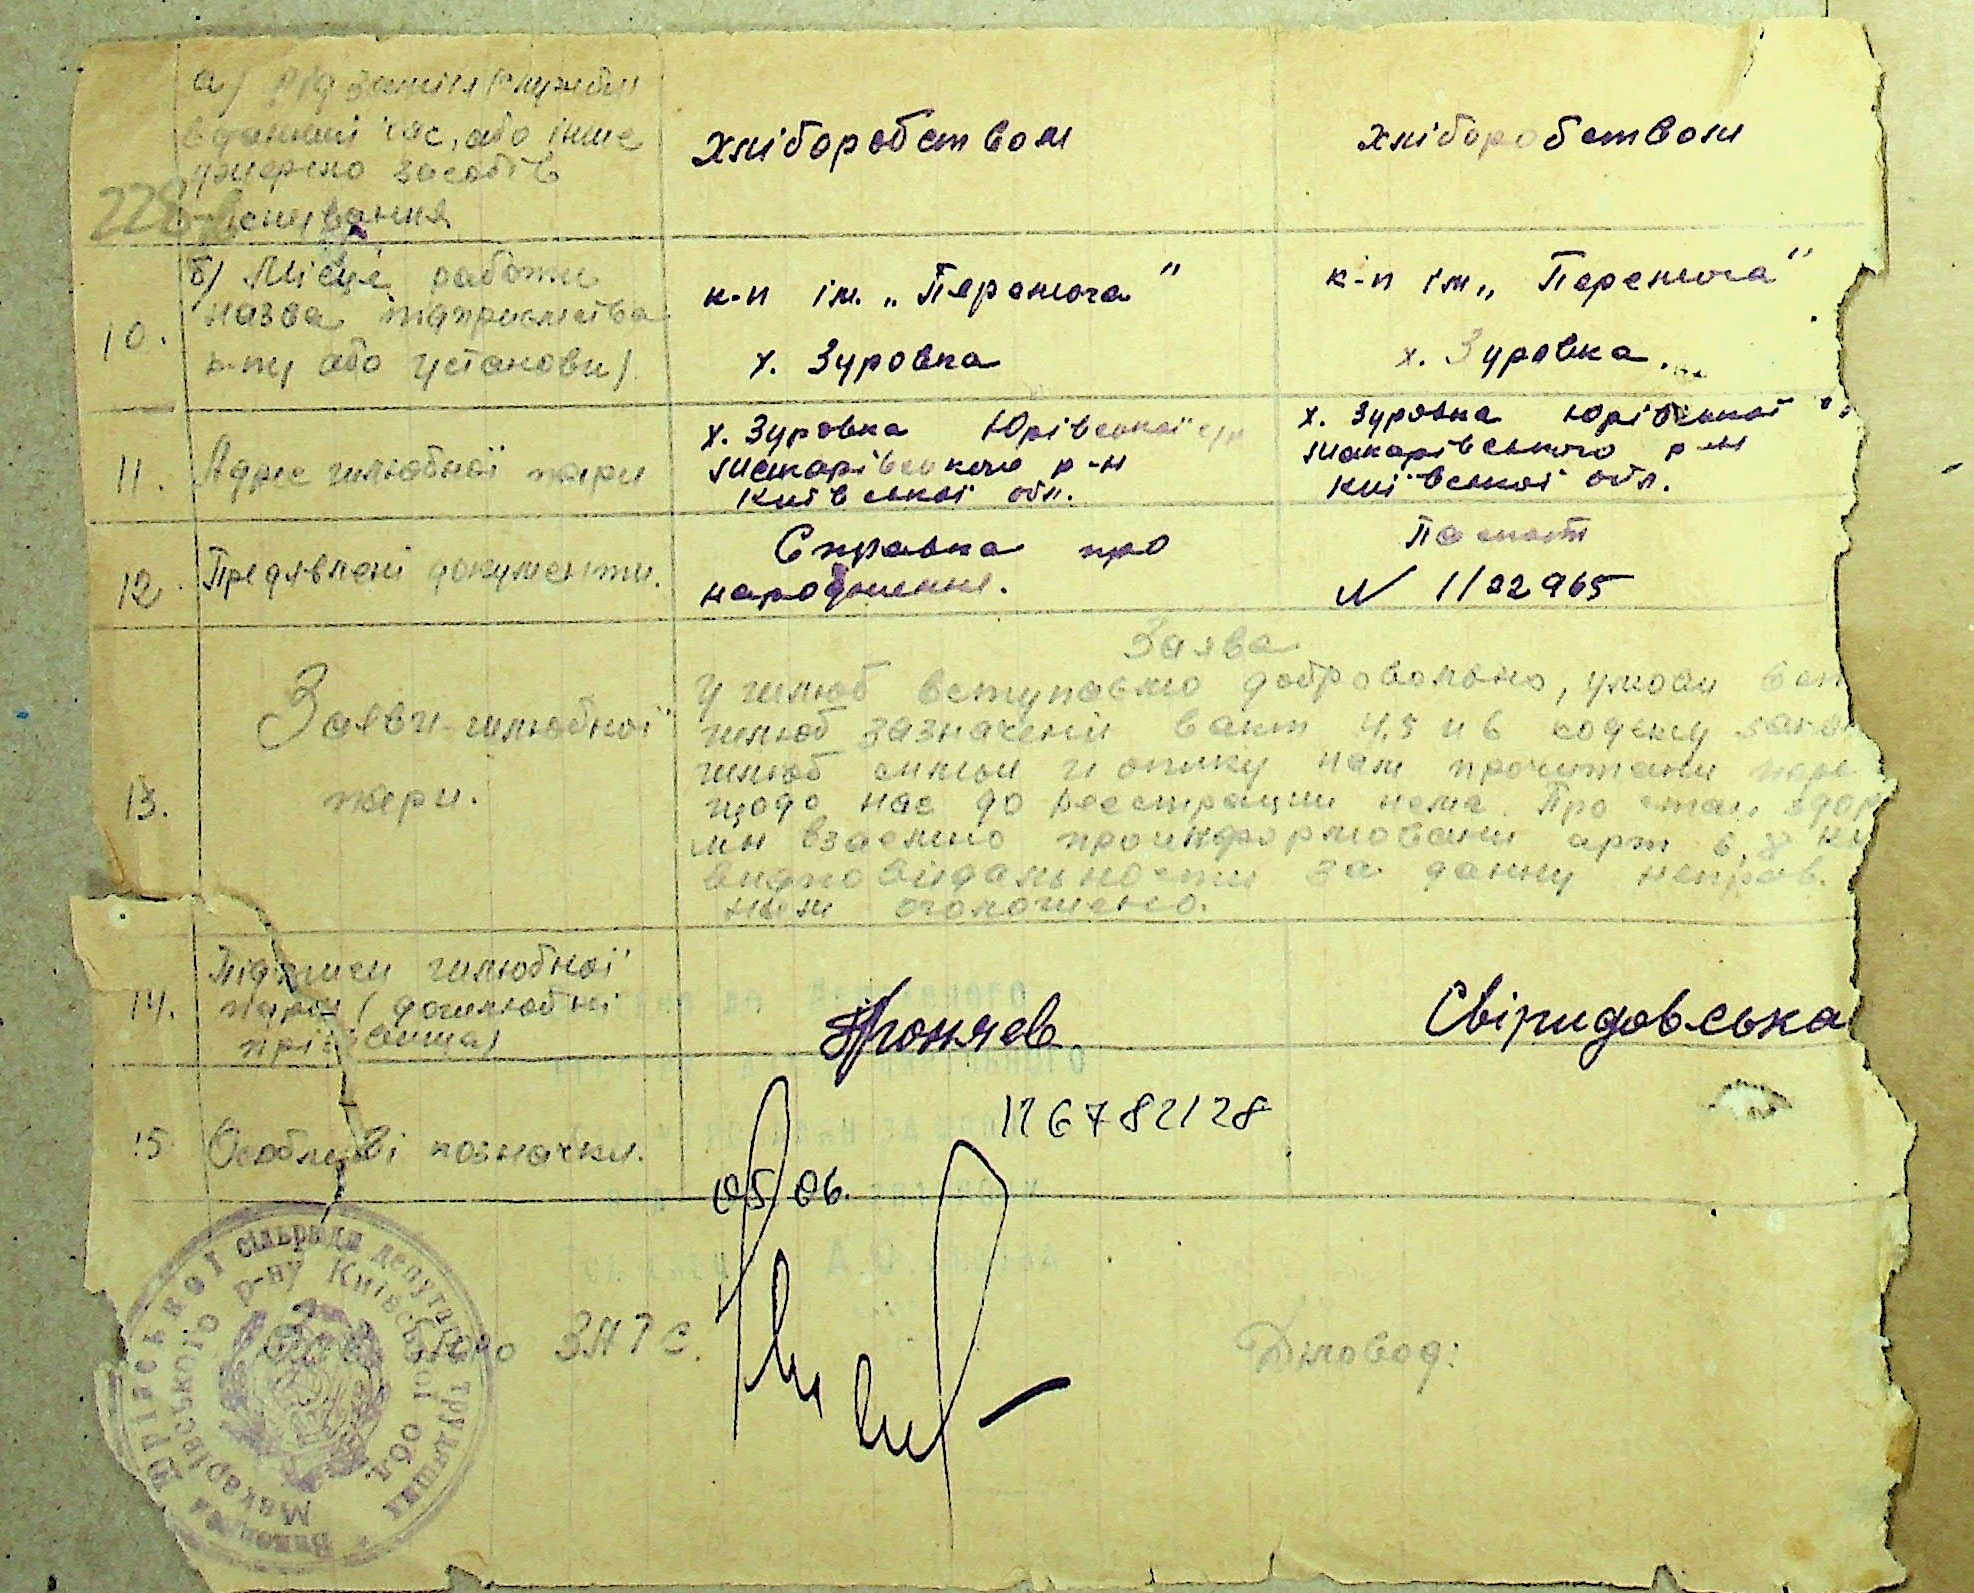 а) Від заняття (служби
в данный час, або інше
джерело засобів
228 існування
хліборобством
хліборобством
10.
б) Місце работи
назва підприємства
к-пу або установи)
к-п ім. „Перемога"
х. Зуровка
к-п ім „Перемога"
х. Зуровка.
11. Адрес шлюбної пари
х. Зуровка Юрівської с/р
Макарівського р-н
Київської обл.
х. Зуровка Юрівської
Макарівського р-н
Київської обл.
12. Предявлені документи.
Справка про
народження.
Паспорт
N 1/22965
13.
Заяви шлюбної
пари.
Заява
У шлюб вступаємо добровольно, умови
шлюб зазначени в акт 4,5 и 6 кодексу
шлюб симьи и опику нам прочитани
щодо нас до реестрации нема. Про стан
ми взаемно проинформовани арт
видповидальности за данну неправ.
нам оголошено.
14.
Підписи шлюбної
пари (дошлюбні
прізвища)
Проняев
Свіридовська
15. Особливі позначки.
126782128
05 06.
ЗАГС.
Діловод:
Виконком Юрівської сільради депутатів трудящих
Макарівського р-ну Київської обл.